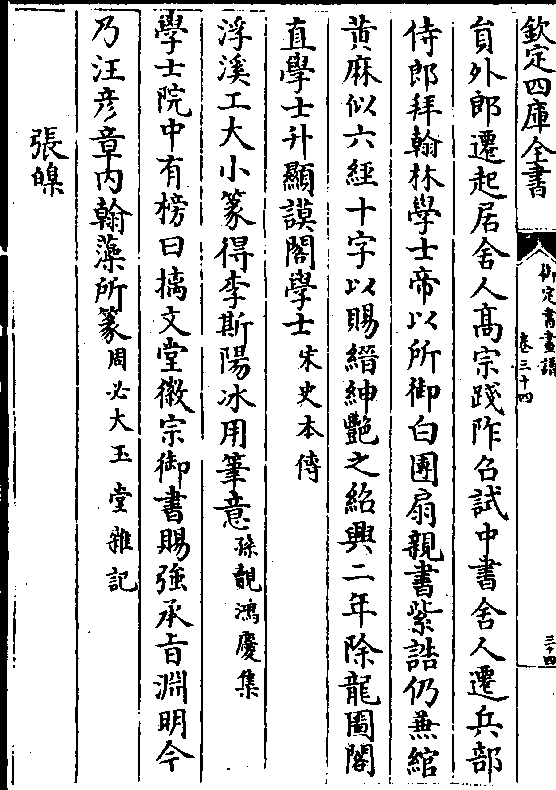 欽定四庫全書
御定書畫譜
卷三十四
三十四
負外郎遷起居舍人髙宗踐阼召試中書舍人遷兵部
侍郎拜翰林學士帝以所御白團扇親書紫誥仍兼綰
黄麻似六經十字以賜縉紳艷之紹興二年除龍圖閣
直學士升顯謨閣學士宋史本傳
浮溪工大小篆得李斯陽冰用筆意孫覿鴻慶集
學士院中有榜曰摛文堂徽宗御書賜強承㫖淵明今
乃汪彦章内翰藻所篆周必大玉堂雜記
張嵲